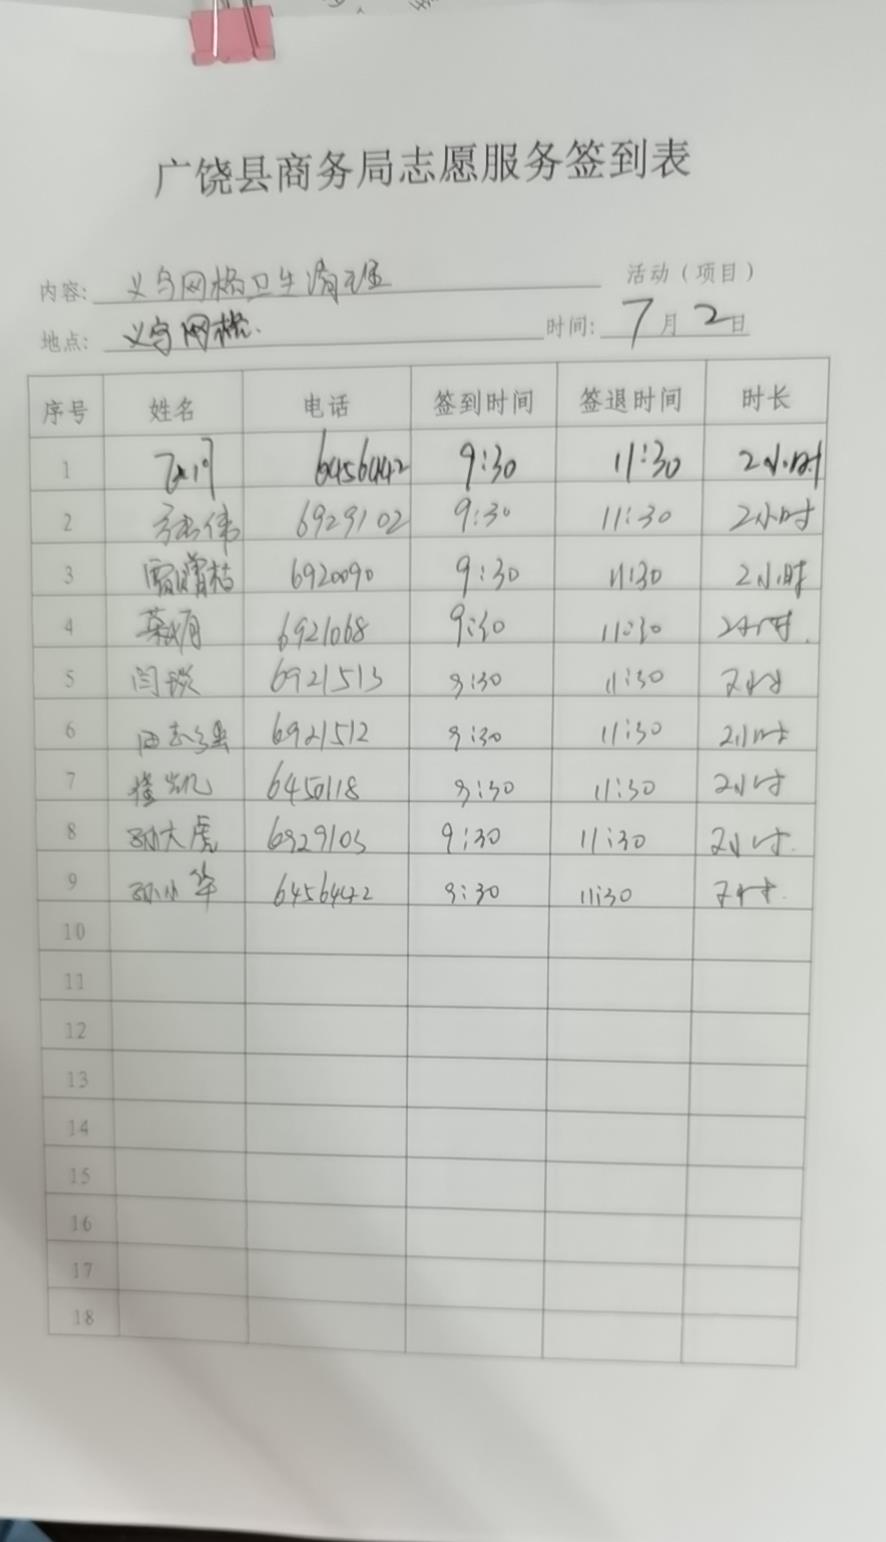 广饶县商务局志愿服务签到表
内容: 义乌网格卫生清理 活动（项目）
地点: 义乌网格. 时间: 7月2日
序号 姓名 电话 签到时间 签退时间 时长
1 6456442 9:30 11:30 2小时
2 6929102 9:30 11:30 2小时
3 6920090 9:30 11:30 2小时
4 6921068 9:30 11:30 2小时.
5 闫谈 6921513 9:30 11:30 2小时
6 田志强 6921512 9:30 11:30 2小时
7 崔凯 6450118 9:30 11:30 2小时
8 孙大虎 6929103 9:30 11:30 2小时.
9 孙小华 6456442 9:30 11:30 2小时.
10
11
12
13
14
15
16
17
18